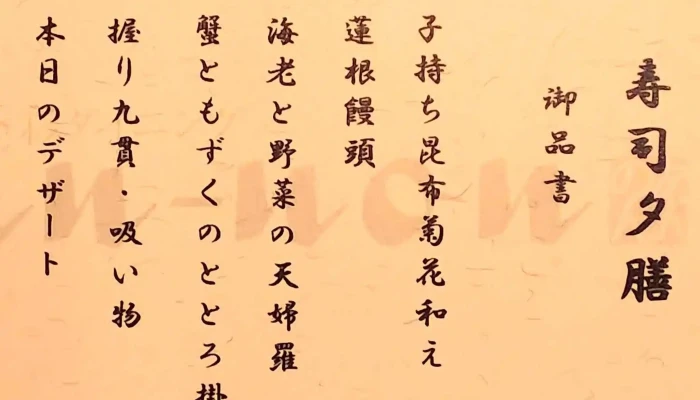 寿司夕膳
御品書
子持ち昆布菊花和え
蓮根饅頭
海老と野菜の天婦羅
蟹ともずくのととろ掛
握り九貫・吸い物
本日のデザート